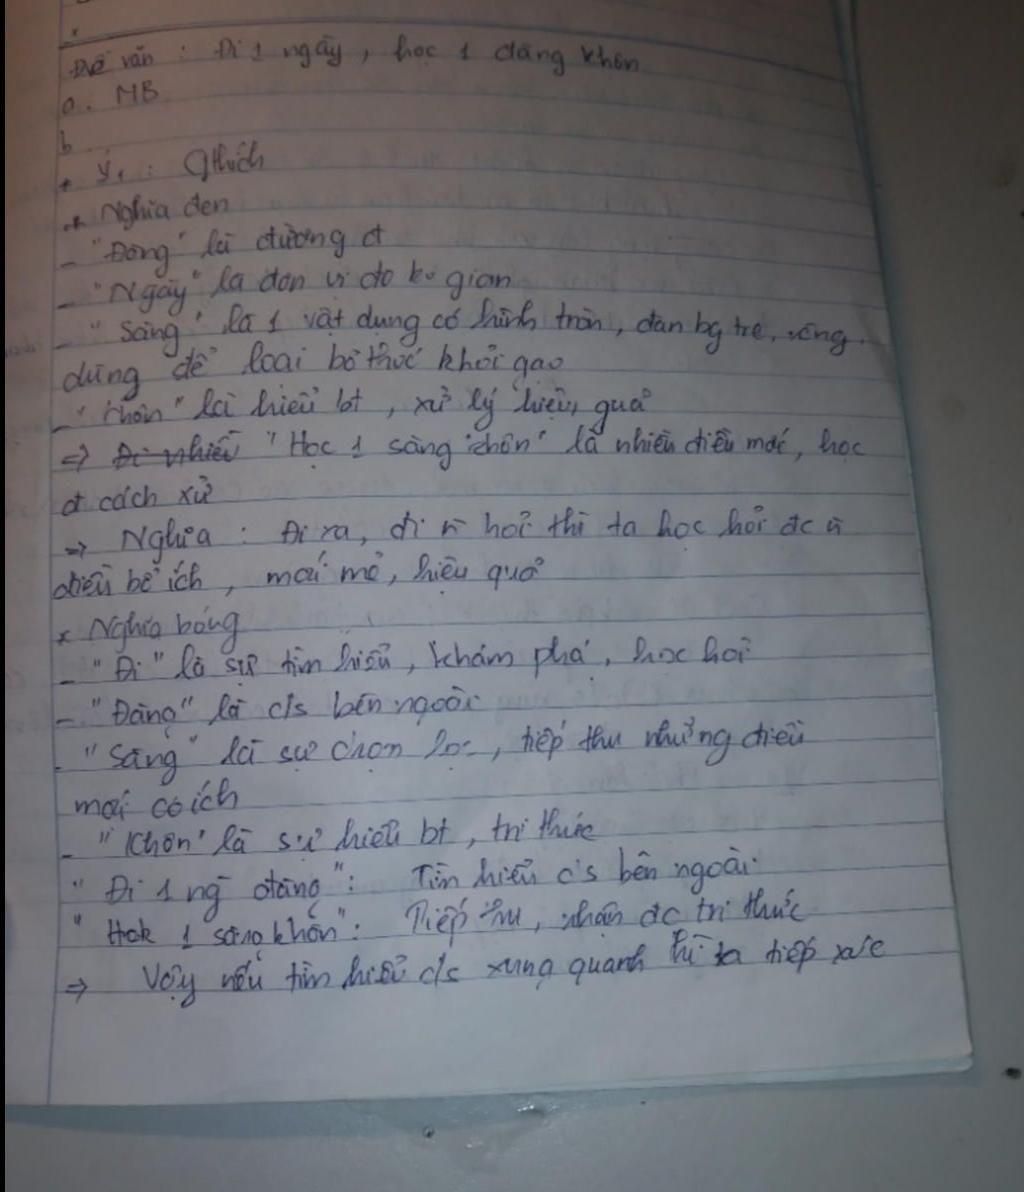 Đề văn : Đi 1 ngày, học 1 dàng khôn
a. MB
b
+ Ý1 : Gthích
* Nghĩa đen
- "Đàng" là đường đ
- "Ngày" là đơn vị đo gian
- "Sàng" là 1 vật dụng có hình tròn, đan bg tre,
dùng để loại bỏ thóc khỏi gạo
- "Khôn" là hiểu bt, xử lý hiệu quả
=> Đi nhiều "Học 1 sàng khôn" là nhiều điều mới, học
đ cách xử
=> Nghĩa : Đi ra, đi hỏi thì ta học hỏi đc
điều bổ ích, mới mẻ, hiệu quả
* Nghĩa bóng
- "Đi" là sự tìm hiểu, khám phá, học hỏi
- "Đàng" là c/s bên ngoài
- "Sàng" là sự chọn lọc, tiếp thu những điều
mới có ích
- "Khôn" là sự hiểu bt, tri thức
"Đi 1 ng đàng": Tìm hiểu c/s bên ngoài
"Hok 1 sàng khôn": Tiếp thu, nhận đc tri thức
=> Vậy nếu tìm hiểu c/s xung quanh ta tiếp xúc